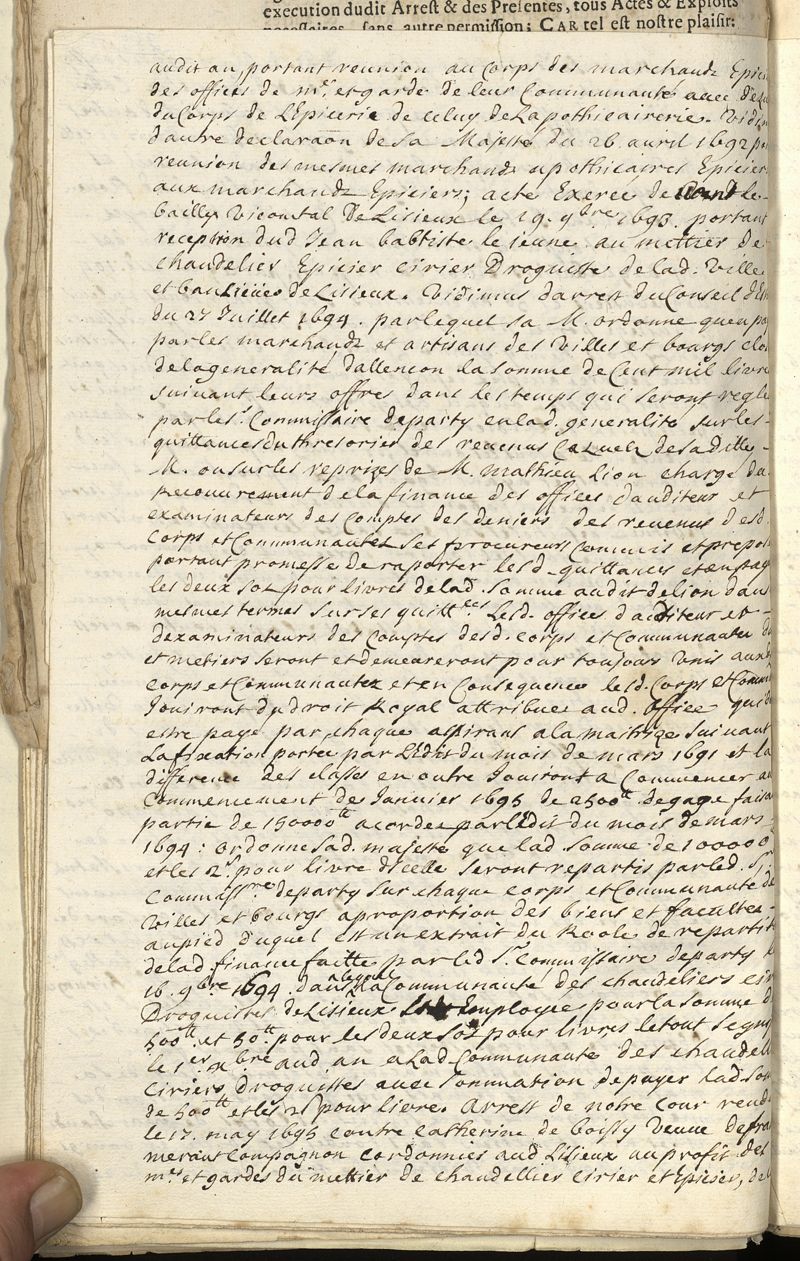 execution dudit Arrest & des Presentes, tous Actes & Exploits
necessaires, sans autre permission; CAR tel est nostre plaisir:
audit an, portant reunion au Corps des marchandz Epici
des offices de mre. et garde de leur Communauté avec
du Corps de L'Epicerie de celuy de Lapothicairerie. Vidim
d'autre declaraon de Sa Majesté du 26. avril 1692 po
reunion des mesmes marchands apothicaires Epicier
aux marchandz Epiciers; acte Exercé de le
bailly Vicomtal De Lisieux le 19. 9bre. 1693. portant
reception dud Jean baptiste le jeune au mettier de
chandelier Epicier Cirier Droguiste de lad. Ville
et banlieüe de Lisieux. Vidimus d'arrest du Conseil d'Es
du 27 Juillet 1694. par lequel sa M. ordonne quen pa
par les marchandz et artisans des Villes et bourgs clos
de la generalité dallencon la somme de Cent mil livre
suivant leurs offres dans les temps qui seront regle
par le sr. Commissaire departy en lad. generalite sur les
quittances du thresorier des revenus Cazuelz de sa ditte
M. ou sur les reprizes de M. Mathieu Lion chargé du
recouvrement de la finance des offices dauditeur et
examinateurs des Comptes des deniers des revenus desd.
Corps et Communautés ses procureurs Commis et prepos
portant promesse de raporter lesd. quittances et en paya
les deux solz pour livres de lad. somme audit de lion dans
mesmes termes sur ses quittces. Lesd. offices d'auditeur et
dexaminateurs des Comptes desd. Corps et Communautez d
et metiers seront et demeureront pour toujours Unis auxd
Corps et Communautez et en Consequence lesd. Corps et Commu
Joüiront du droit Royal attribué aud. office qui d
estre payé par chaque aspirant a la maitrize suivant
La fixation portée par L'Edit du mois de mars 1691 et la
difference des classes en outre Joüiront a Commencer au
Commencement de Janvier 1695 de 2500tt. de gage faisa
partie de 150000tt acordez par L'Edit du mois de mars
1694: ordonne Sad. majesté que lad. Somme de 100000
et les 2s. pour livre dicelle seront repartis par led. Sr.
Commissre. departy sur chaque corps et Communauté de
Villes et bourgs a proportion des biens et facultez
au pied duquel est un extrait du Roole de repartit
de lad. finance faitte par led Sr. Commissaire departy
16. 9bre 1694. dans laquelle la Communauté des chandeliers cir
Droguistes de Lisieux Employée pour la somme d
500tt. et 50tt. pour les deux solz pour livres le tout signi
le 1er. xbre aud. an a lad. Communauté des chandell
Ciriers Droguistes avec sommation de payer lad. Som
de 500tt et les 2s pour livre. Arrest de notre Cour rendu
le 17. may 1695 contre Catherine de boissy Veuve de fra
merant Compagnon Cordonnier aud Lisieux au profit des
mes et gardes du mettier de chandellier Cirier et Epicier, de